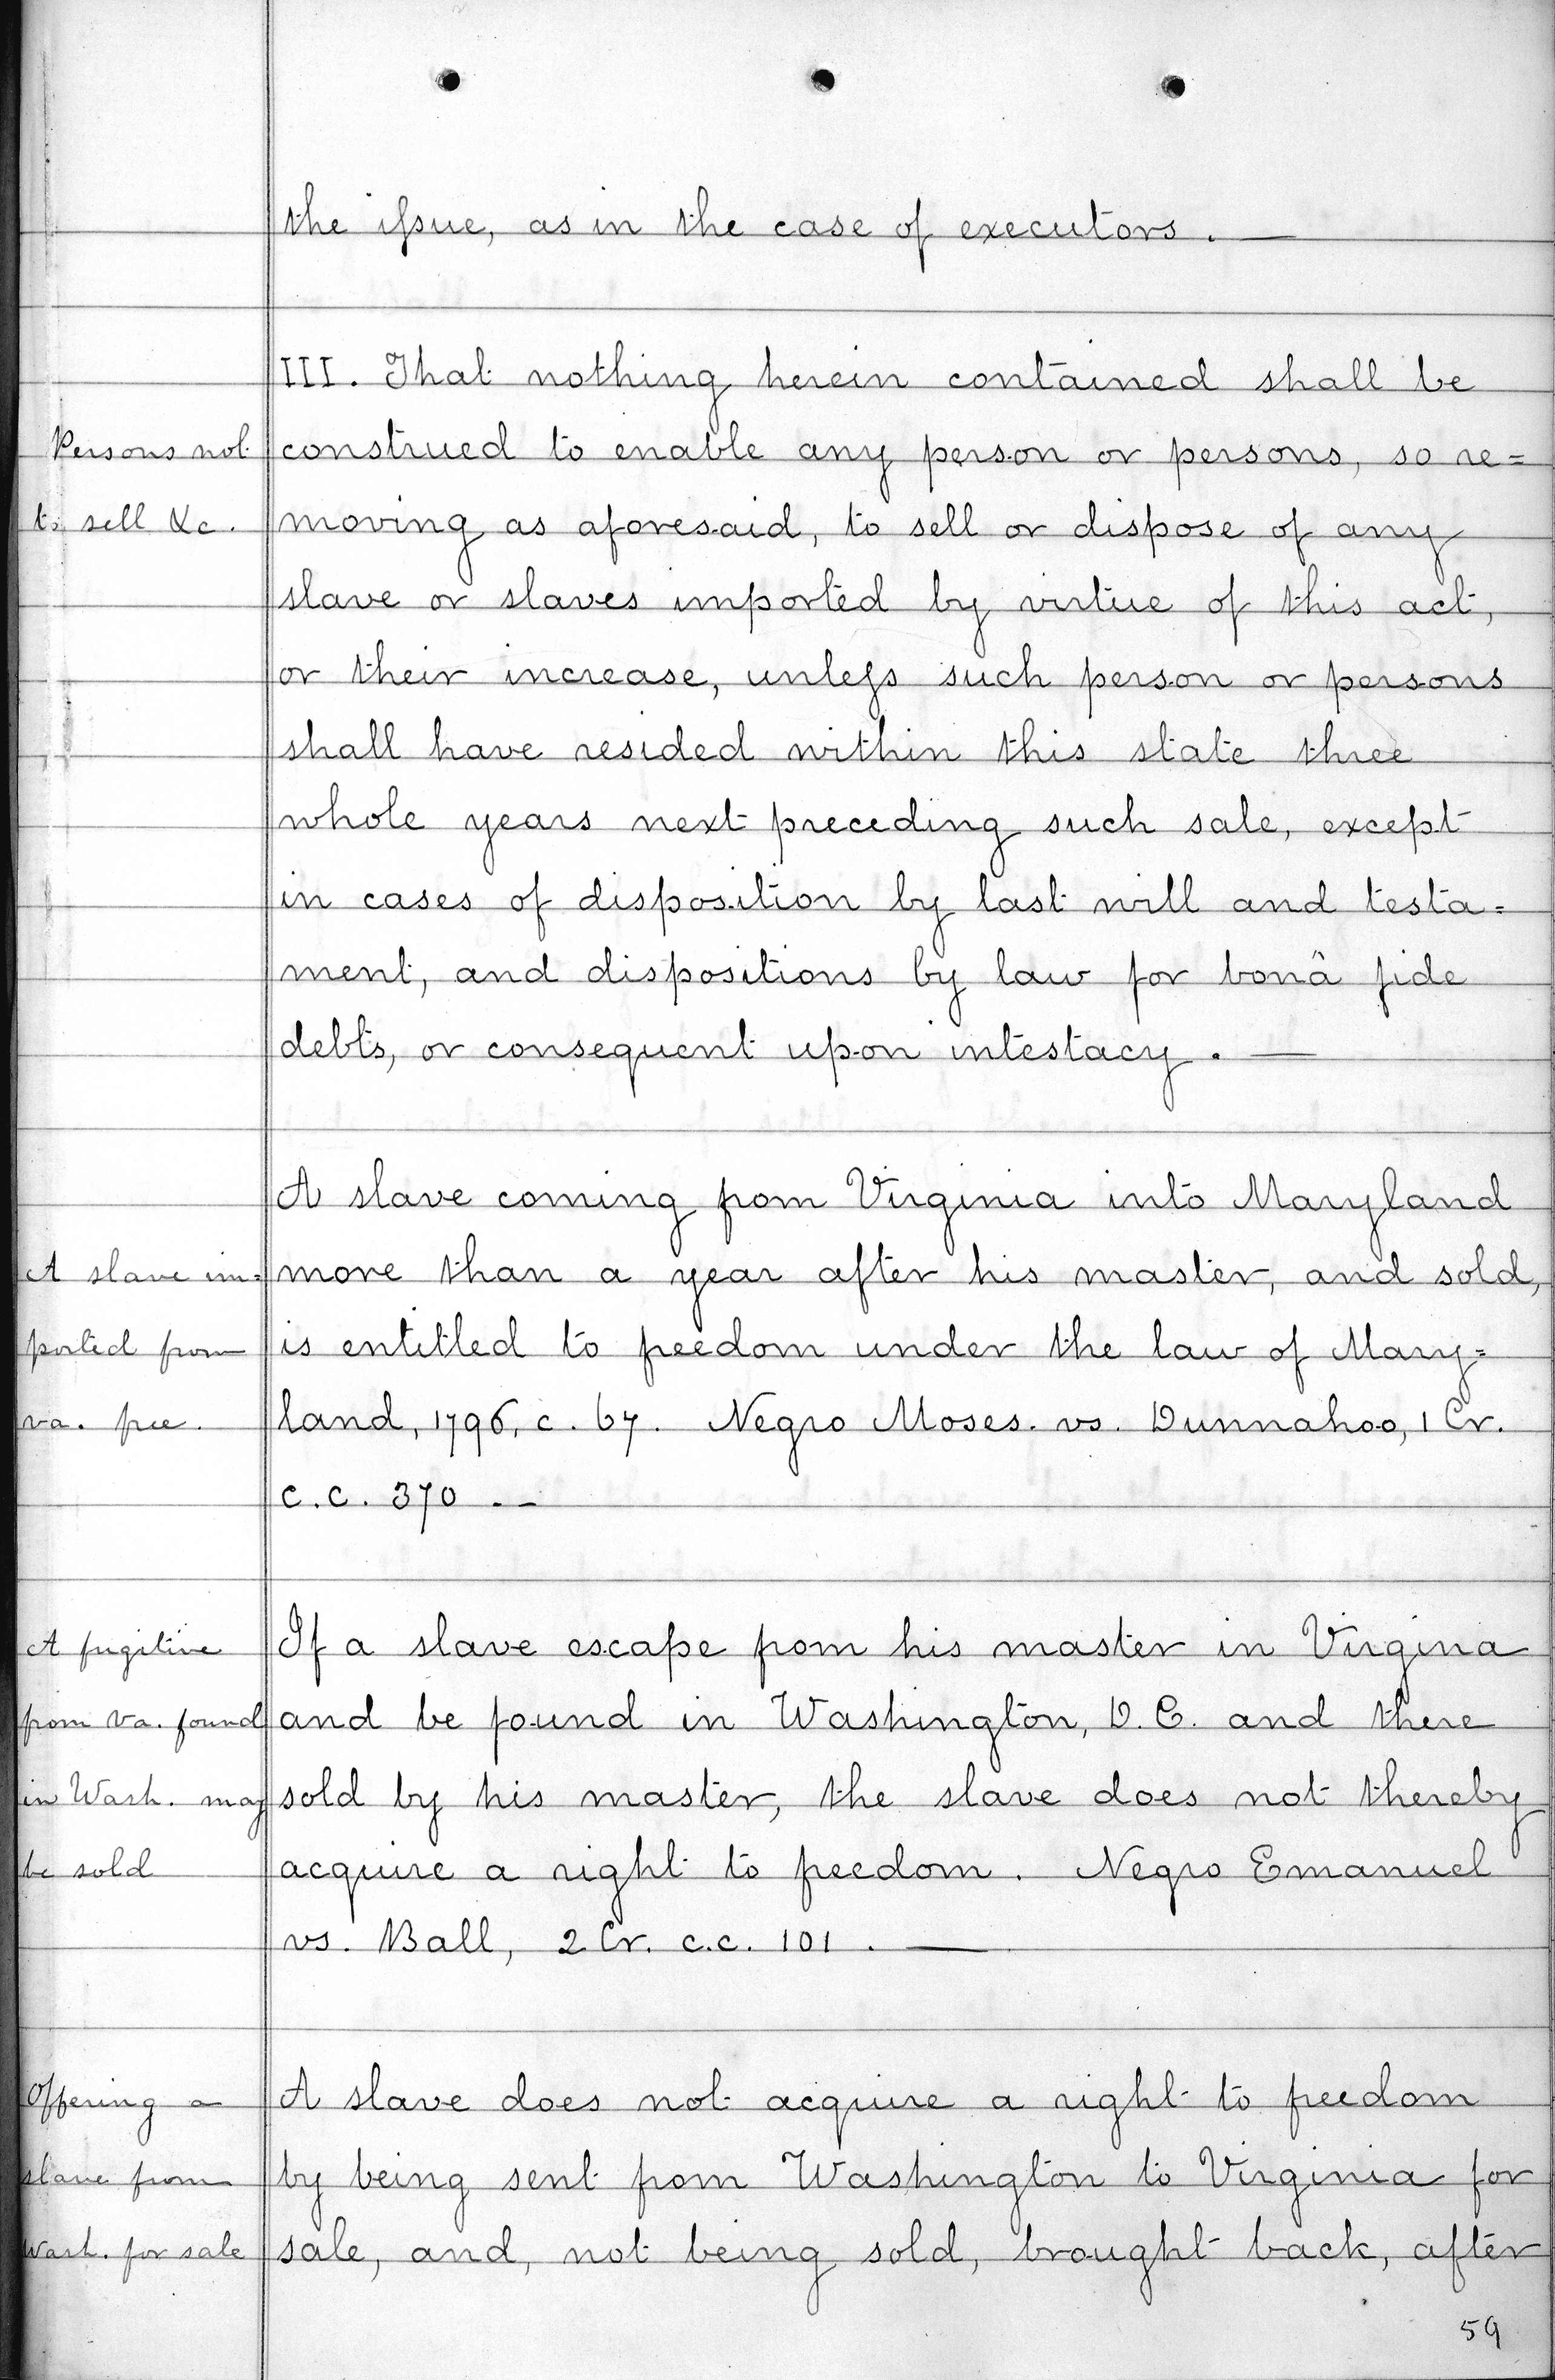 the issue, as in the case of executors. —
III. That nothing herein contained shall be
Persons not
construed to enable any person or persons, so re=
to sell &c.
moving as aforesaid, to sell or dispose of any
slave or slaves imported by virtue of this act,
or their increase, unless such person or persons
shall have resided within this state three
whole years next preceding such sale, except
in cases of disposition by last will and testa=
ment, and dispositions by law for bonâ fide
debts, or consequent upon intestacy. —
A slave coming from Virginia into Maryland
A slave im=
more than a year after his master, and sold,
ported from
is entitled to freedom under the law of Mary=
va. free.
land, 1796, c. 67. Negro Moses. vs. Dunnahoo, 1 Cr.
c.c. 370 . —
A fugitive
If a slave escape from his master in Virgina
from Va. found
and be found in Washington, D.C. and there
in Wash. may
sold by his master, the slave does not thereby
be sold
acquire a right to freedom. Negro Emanuel
vs. Ball, 2 Cr. c.c. 101 . —
Offering a
A slave does not acquire a right to freedom
slave from
by being sent from Washington to Virginia for
Wash. for sale
sale, and, not being sold, brought back, after
59